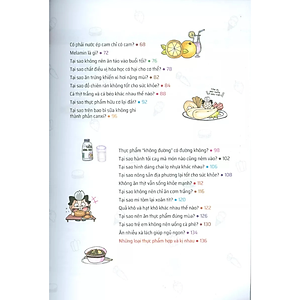 Có phải nước ép cam chỉ có cam? • 68
Melamin là gì? • 72
Tại sao không nên ăn báo vào buổi tối? • 76
Tại sao chất điều vị hóa học có hại cho cơ thể? • 78
Tại sao ăn trứng khiến vị hơi nặng mùi? • 82
Tại sao đồ chiên rán không tốt cho sức khỏe? • 84
Cá thịt trắng và cá béo khác nhau thế nào? • 88
Tại sao thực phẩm hữu cơ lại đắt? • 92
Tại sao trên bao bì sữa không ghi
thành phần canxi? • 96
Thực phẩm "không đường" có đường không? • 98
Tại sao hành tối cay mà món nào cũng nêm vào? • 102
Tại sao hình dáng chai lọ nhựa khác nhau? • 106
Tại sao nông sản địa phương lại tốt cho sức khỏe? • 108
Không ăn thịt vẫn sống khỏe mạnh? • 112
Tại sao không nên chỉ ăn cơm trắng? • 116
Tại sao mì tôm lại xoăn tít? • 120
Quả khô và hạt khô khác nhau thế nào? • 122
Tại sao nên ăn thực phẩm đúng mùa? • 126
Tại sao trẻ em không nên uống cà phê? • 130
Ăn nhiều xà lách giúp ngủ ngon? • 134
Những loại thực phẩm hợp và kị nhau • 136